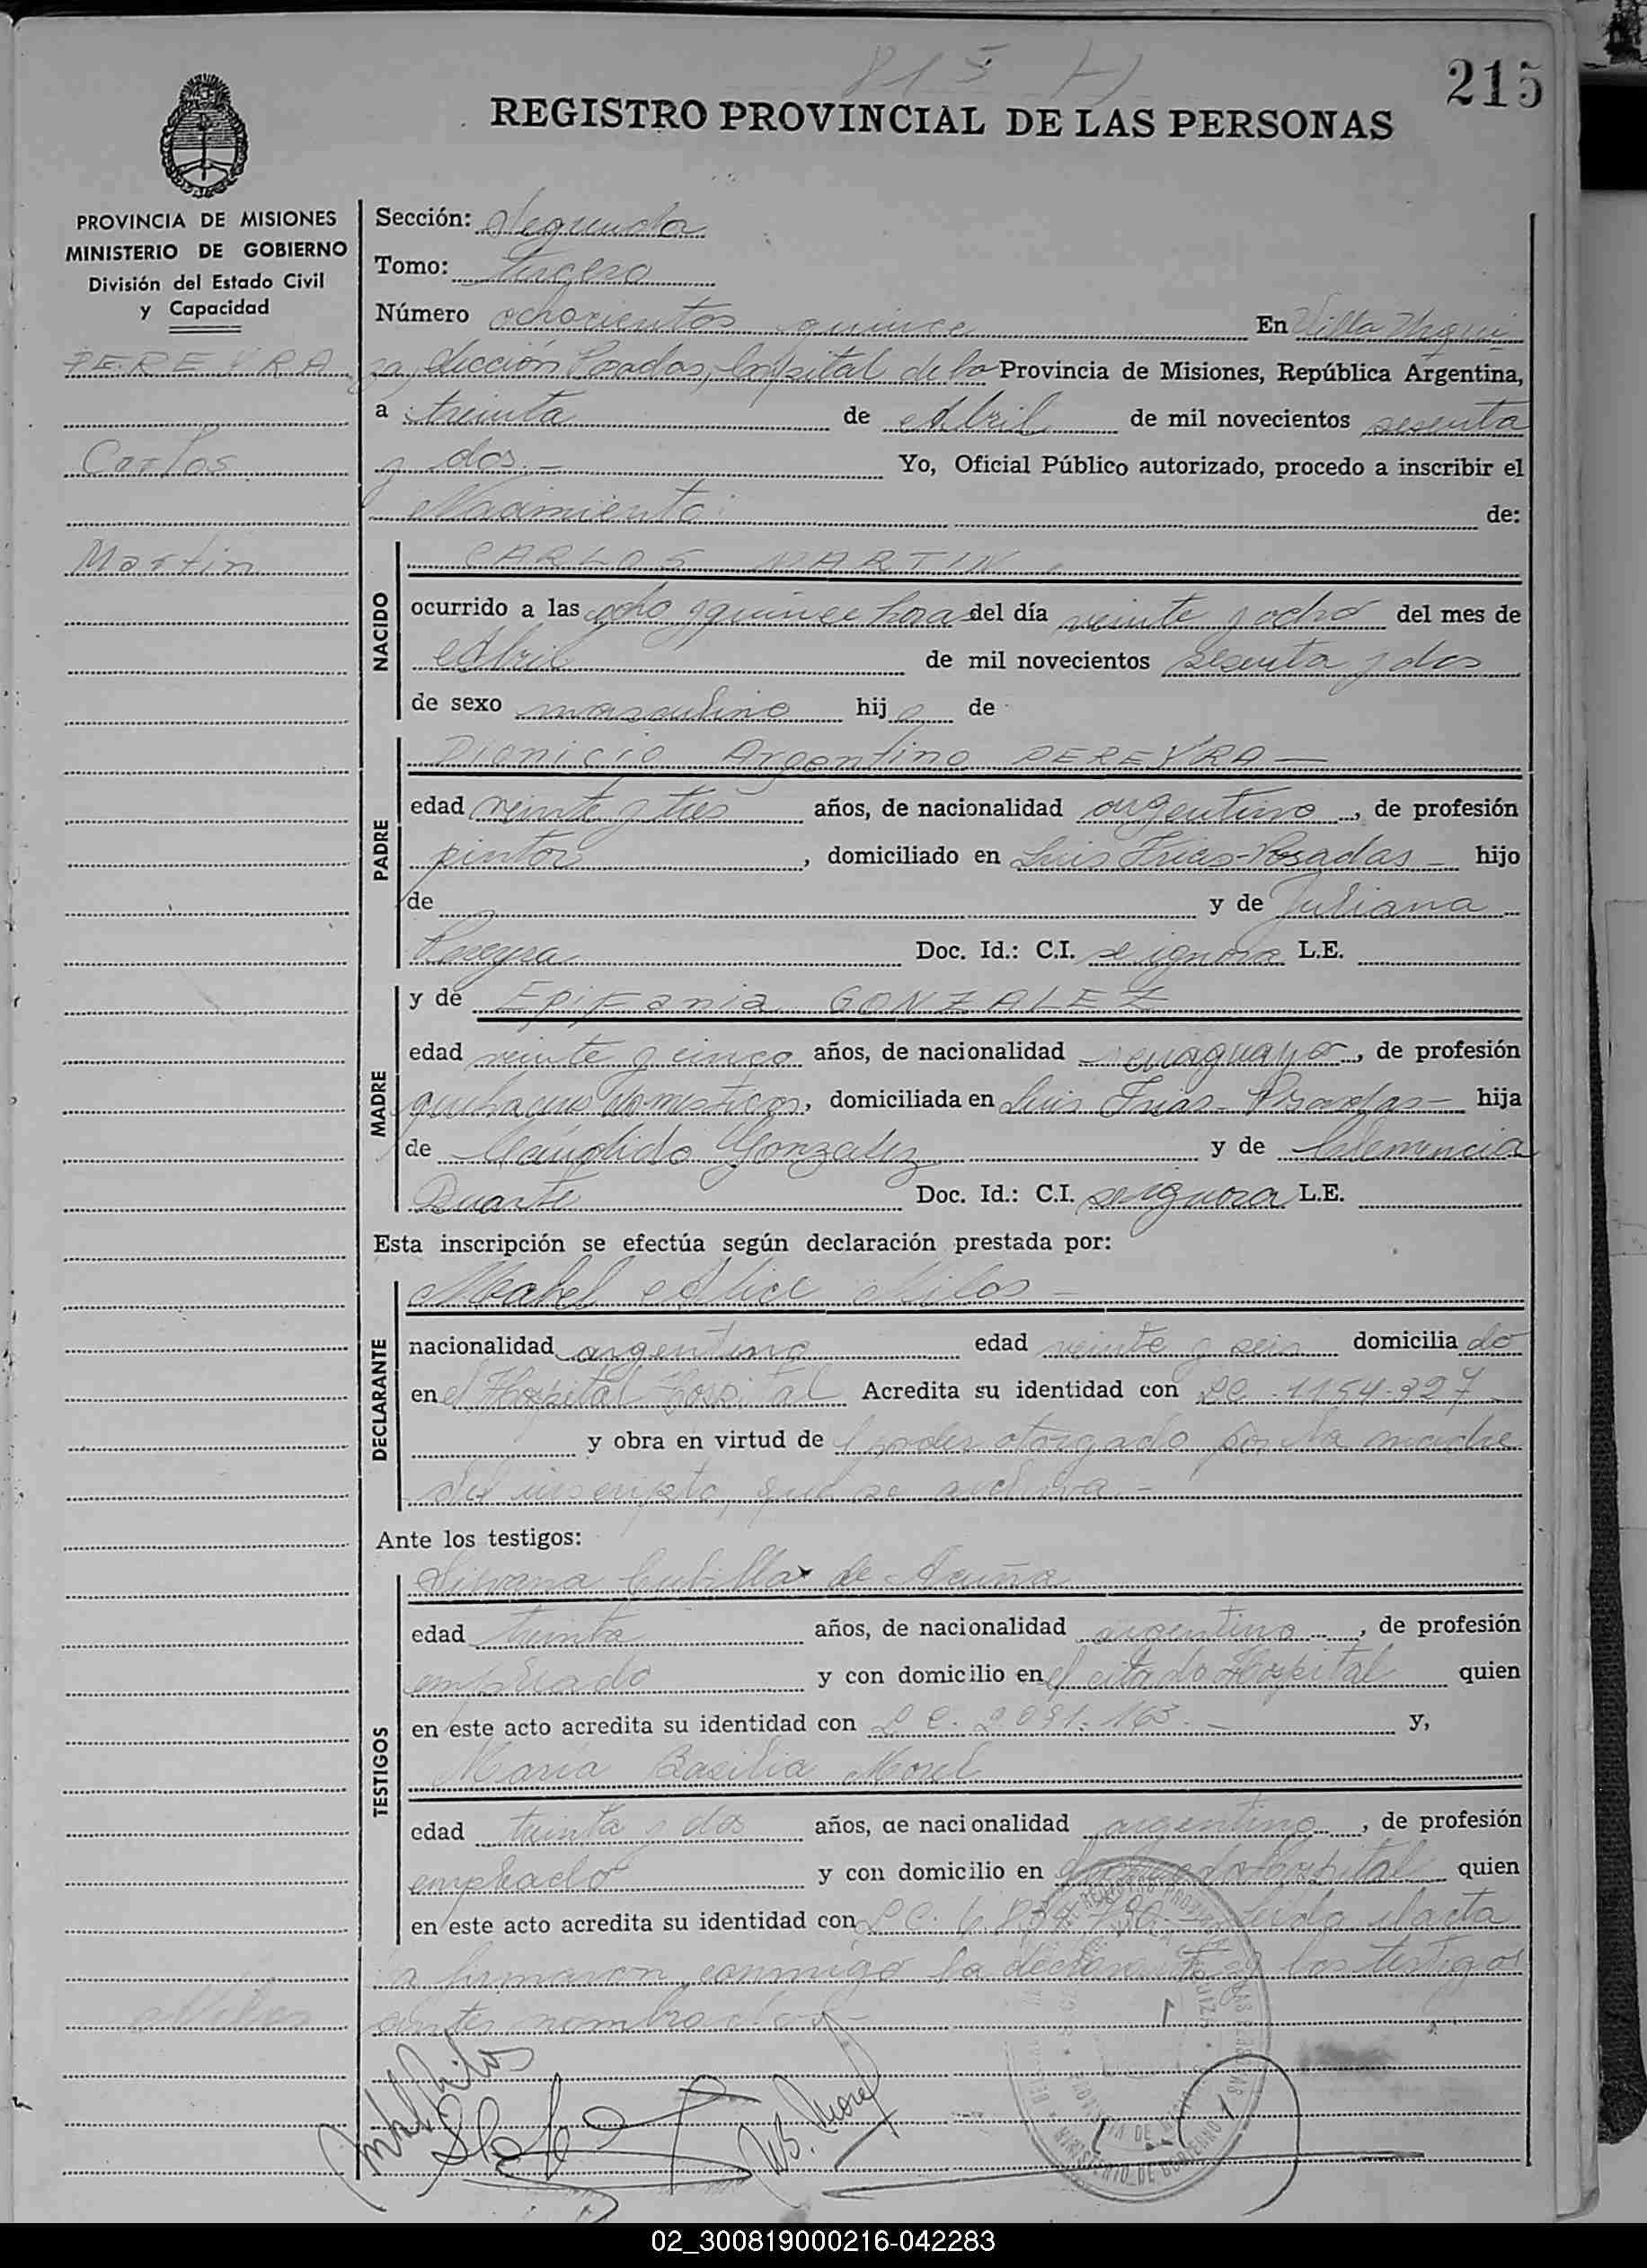 815
215
REGISTRO PROVINCIAL DE LAS PERSONAS
PROVINCIA DE MISIONES
MINISTERIO DE GOBIERNO
División del Estado Civil
y Capacidad
PEREYRA
Carlos
Martin
Sección: Segunda
Tomo: tercero
Número ochocientos quince En Villa Urqui
za, Sección Posadas, Hospital de la Provincia de Misiones, República Argentina,
a treinta de Abril de mil novecientos sesenta
y dos.- Yo, Oficial Público autorizado, procedo a inscribir el
Nacimiento de:
NACIDO
CARLOS MARTIN
ocurrido a las ocho y quince horas del día veinte y ocho del mes de
Abril de mil novecientos sesenta y dos
de sexo masculino hijo de
PADRE
Dionicio Argentino PEREYRA —
edad veinte y tres años, de nacionalidad argentino, de profesión
pintor, domiciliado en Luis Frias-Posadas - hijo
de y de Juliana
Pereyra Doc. Id.: C.I. se ignora L.E.
MADRE
y de Epifania GONZALEZ
edad veinte y cinco años, de nacionalidad , de profesión
quehaceres domesticos, domiciliada en Luis Frias - Posadas - hija
de Cándido Gonzalez y de Clemencia
Duarte Doc. Id.: C.I. se ignora L.E.
Esta inscripción se efectúa según declaración prestada por:
DECLARANTE
Mabel Alice Milos -
nacionalidad argentina edad veinte y seis domiciliado
en el Hospital Acredita su identidad con LC. 1154.327
y obra en virtud de poder otorgado por la madre
del inscripto, que se archiva -
Ante los testigos:
TESTIGOS
Silvana Cubilla de Acuña
edad treinta años, de nacionalidad argentino, de profesión
empleado y con domicilio en el citado Hospital quien
en este acto acredita su identidad con L C. 2.091.163.- y,
María Basilia Morel
edad treinta y dos años, de nacionalidad argentino, de profesión
empleado y con domicilio en Hospital quien
en este acto acredita su identidad con L C. Leída el acta
la firmaron conmigo la declarante y los testigos
antes nombrados -
M.B. Morel
MINISTERIO DE GOBIERNO
02_300819000216-042283